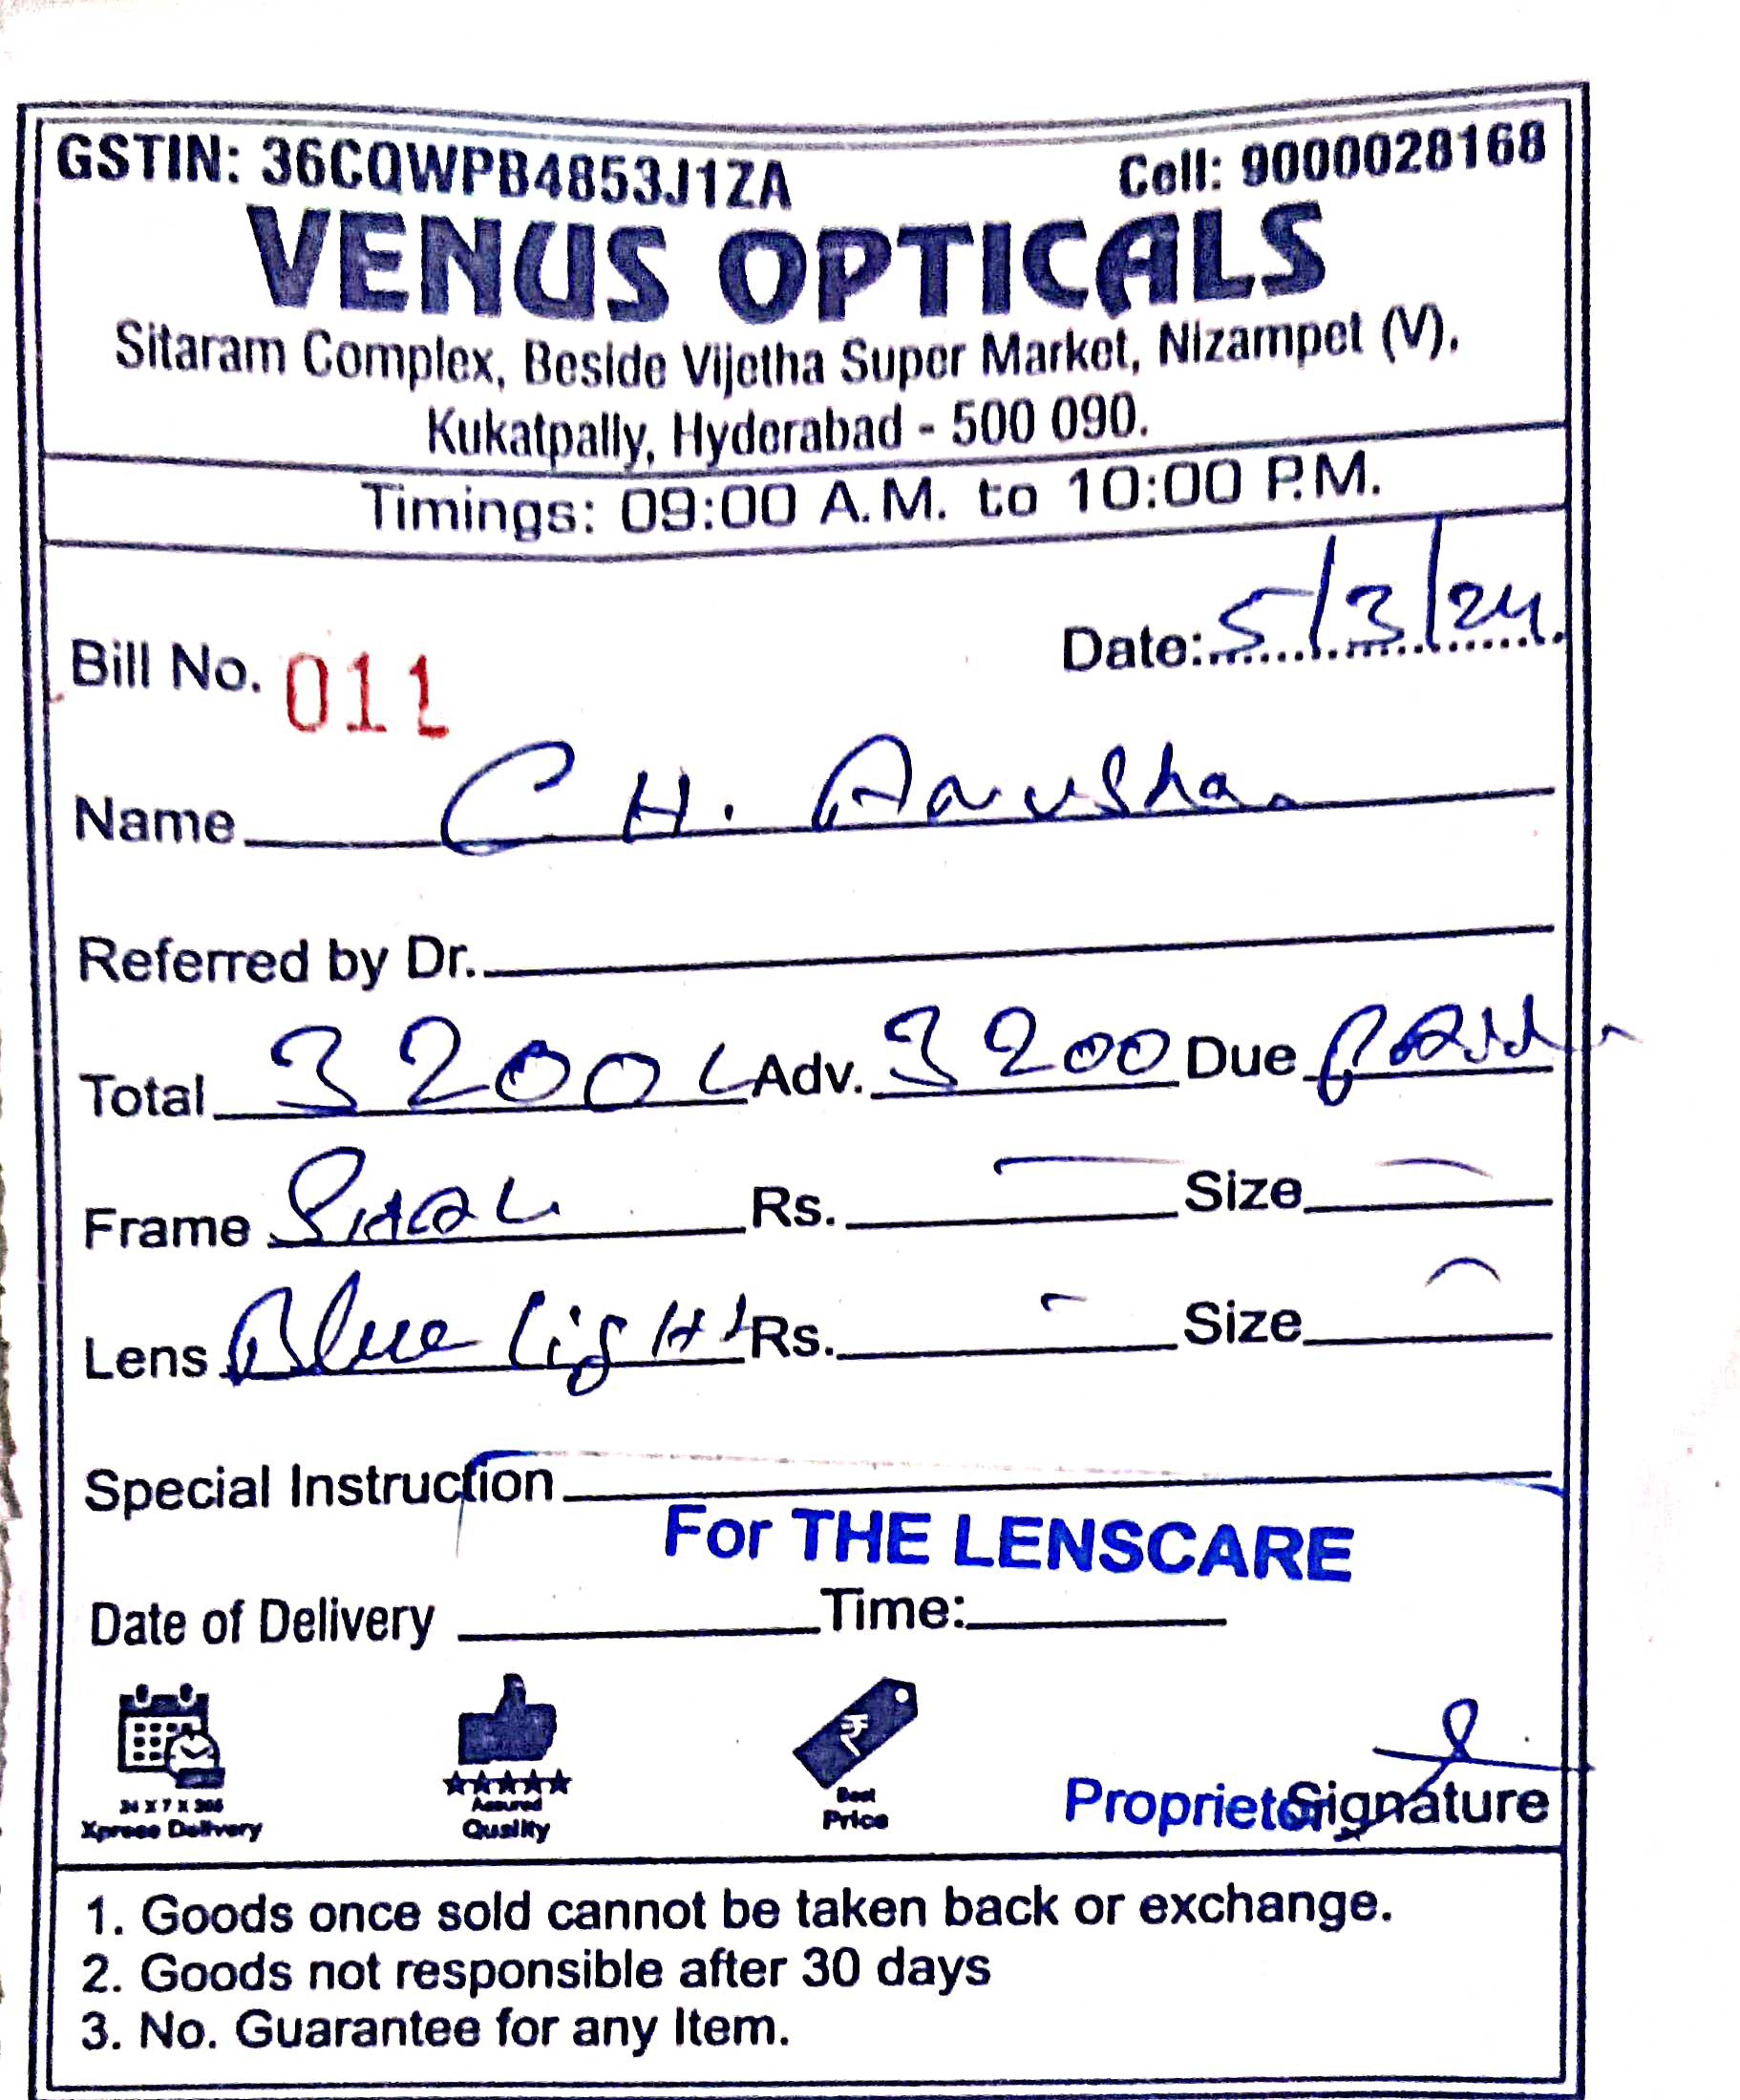 GSTIN: 36CQWPB4853J1ZA Cell: 9000028168
VENUS OPTICALS
Sitaram Complex, Beside Vijetha Super Market, Nizampet (V),
Kukatpally, Hyderabad - 500 090.
Timings: 09:00 A.M. to 10:00 P.M.
Bill No. 011 Date: 5/3/24
Name CH. Anusha
Referred by Dr.
Total 3200 Adv. 3200 Due
Frame Rs. Size
Lens Blue light Rs. Size
Special Instruction
For THE LENSCARE
Date of Delivery Time:
24 X 7 X 365
Xpress Delivery
Assured
Quality
Best
Price
Proprietor Signature
1. Goods once sold cannot be taken back or exchange.
2. Goods not responsible after 30 days
3. No. Guarantee for any Item.